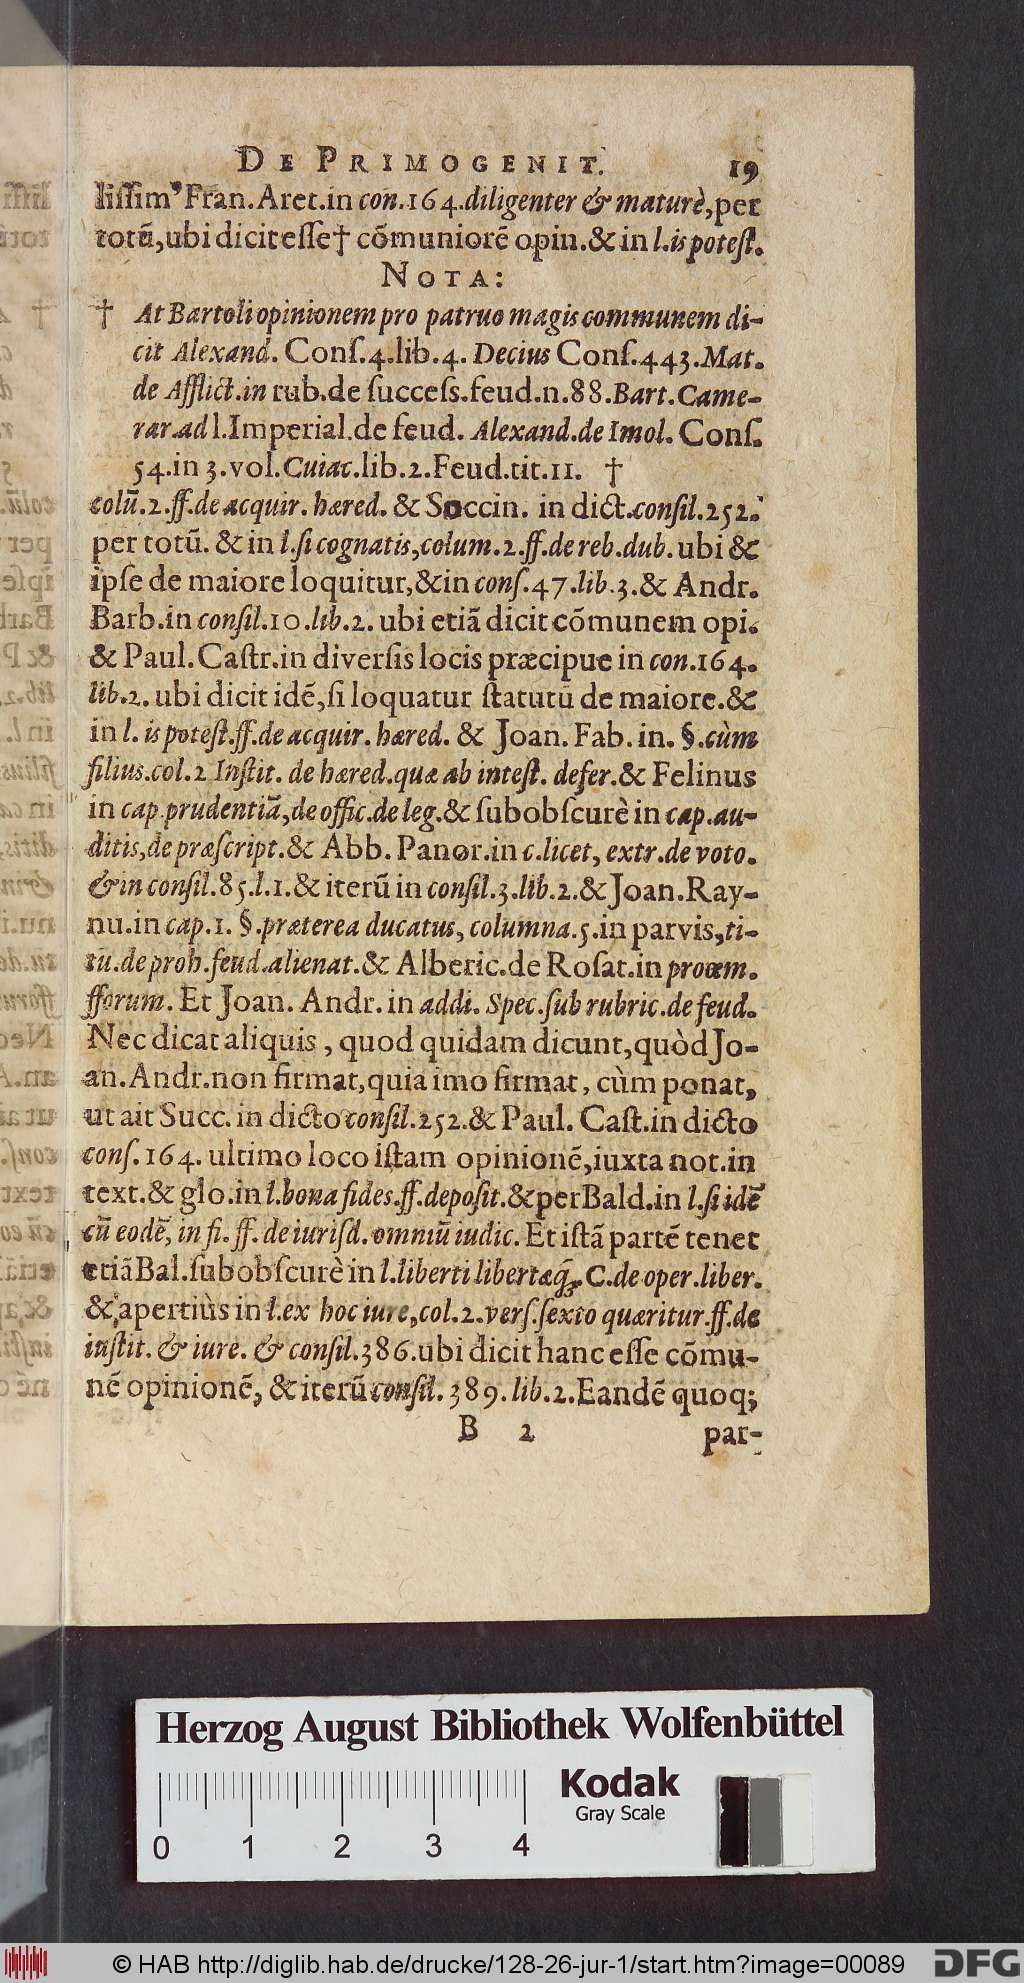 DE PRIMOGENIT. 19
lissimꝰ Fran. Aret. in con. 164. diligenter & maturè, per
totũ, ubi dicit esse † cõmuniorẽ opin. & in l. is potest.
NOTA:
† At Bartoli opinionem pro patruo magis communem di-
cit Alexand. Conſ. 4. lib. 4. Decius Conſ. 443. Mat.
de Afflict. in rub. de ſucceſs. feud. n. 88. Bart. Came-
rar. ad l. Imperial. de feud. Alexand. de Imol. Conſ.
54. in 3. vol. Cuiac. lib. 2. Feud. tit. 11. †
colũ. 2. ff. de acquir. hæred. & Soccin. in dict. conſil. 252.
per totũ. & in l. ſi cognatis, colum. 2. ff. de reb. dub. ubi &
ipſe de maiore loquitur, & in conſ. 47. lib. 3. & Andr.
Barb. in conſil. 10. lib. 2. ubi etiã dicit cõmunem opi.
& Paul. Caſtr. in diverſis locis præcipue in con. 164.
lib. 2. ubi dicit idẽ, ſi loquatur ſtatutũ de maiore. &
in l. is poteſt. ff. de acquir. hæred. & Joan. Fab. in. §. cùm
filius. col. 2 Inſtit. de hæred. quæ ab inteſt. defer. & Felinus
in cap. prudentiã, de offic. de leg. & ſubobſcurè in cap. au-
ditis, de præſcript. & Abb. Panor. in c. licet, extr. de voto.
& in conſil. 85. l. 1. & iterũ in conſil. 3. lib. 2. & Joan. Ray-
nu. in cap. 1. §. præterea ducatus, columna. 5. in parvis, ti-
tu. de proh. feud. alienat. & Alberic. de Roſat. in proœm.
fforum. Et Joan. Andr. in addi. Spec. ſub rubric. de feud.
Nec dicat aliquis, quod quidam dicunt, quòd Jo-
an. Andr. non firmat, quia imo firmat, cùm ponat,
ut ait Succ. in dicto conſil. 252. & Paul. Caſt. in dicto
conſ. 164. ultimo loco iſtam opinionẽ, iuxta not. in
text. & glo. in l. bona fides. ff. depoſit. & per Bald. in l. ſi idẽ
cũ eodẽ, in fi. ff. de iuriſd. omniũ iudic. Et iſtã partẽ tenet
etiã Bal. ſubobſcurè in l. liberti libertæq́;, C. de oper. liber.
& apertiùs in l. ex hoc iure, col. 2. verſ. ſexto quæritur. ff. de
inſtit. & iure. & conſil. 386. ubi dicit hanc eſſe cõmu-
nẽ opinionẽ, & iterũ conſil. 389. lib. 2. Eandẽ quoq;
B 2 par-
Herzog August Bibliothek Wolfenbüttel
Kodak
Gray Scale
0 1 2 3 4
© HAB http://diglib.hab.de/drucke/128-26-jur-1/start.htm?image=00089
DFG